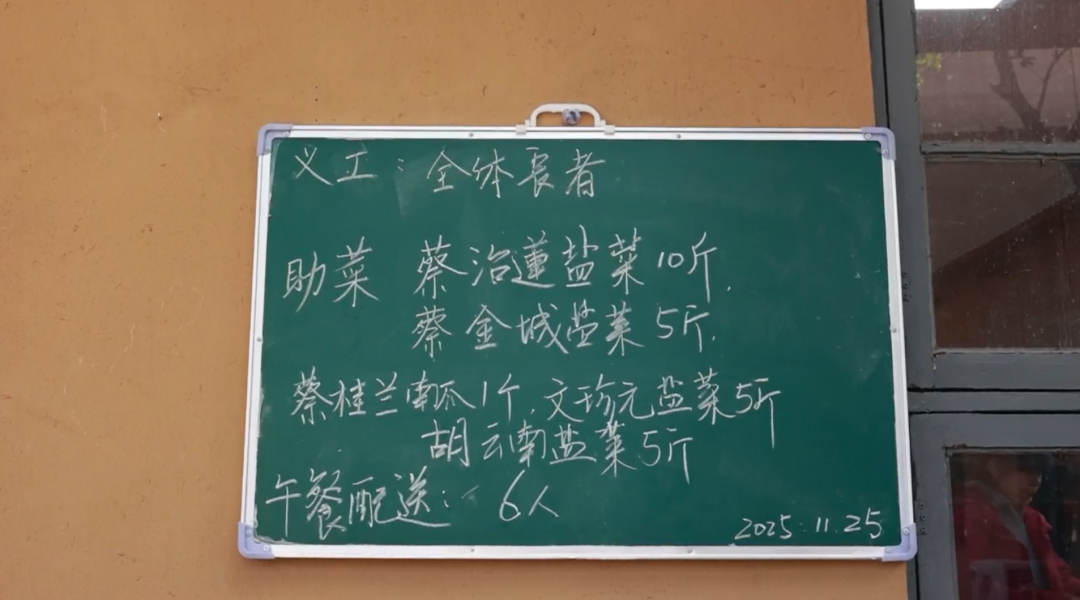 义工：全体長者
助菜 蔡治蓮盐菜10斤
蔡金城盐菜5斤.
蔡桂兰南瓜1个.文珍元盐菜5斤
胡云南盐菜5斤
午餐配送：6人
2025.11.25